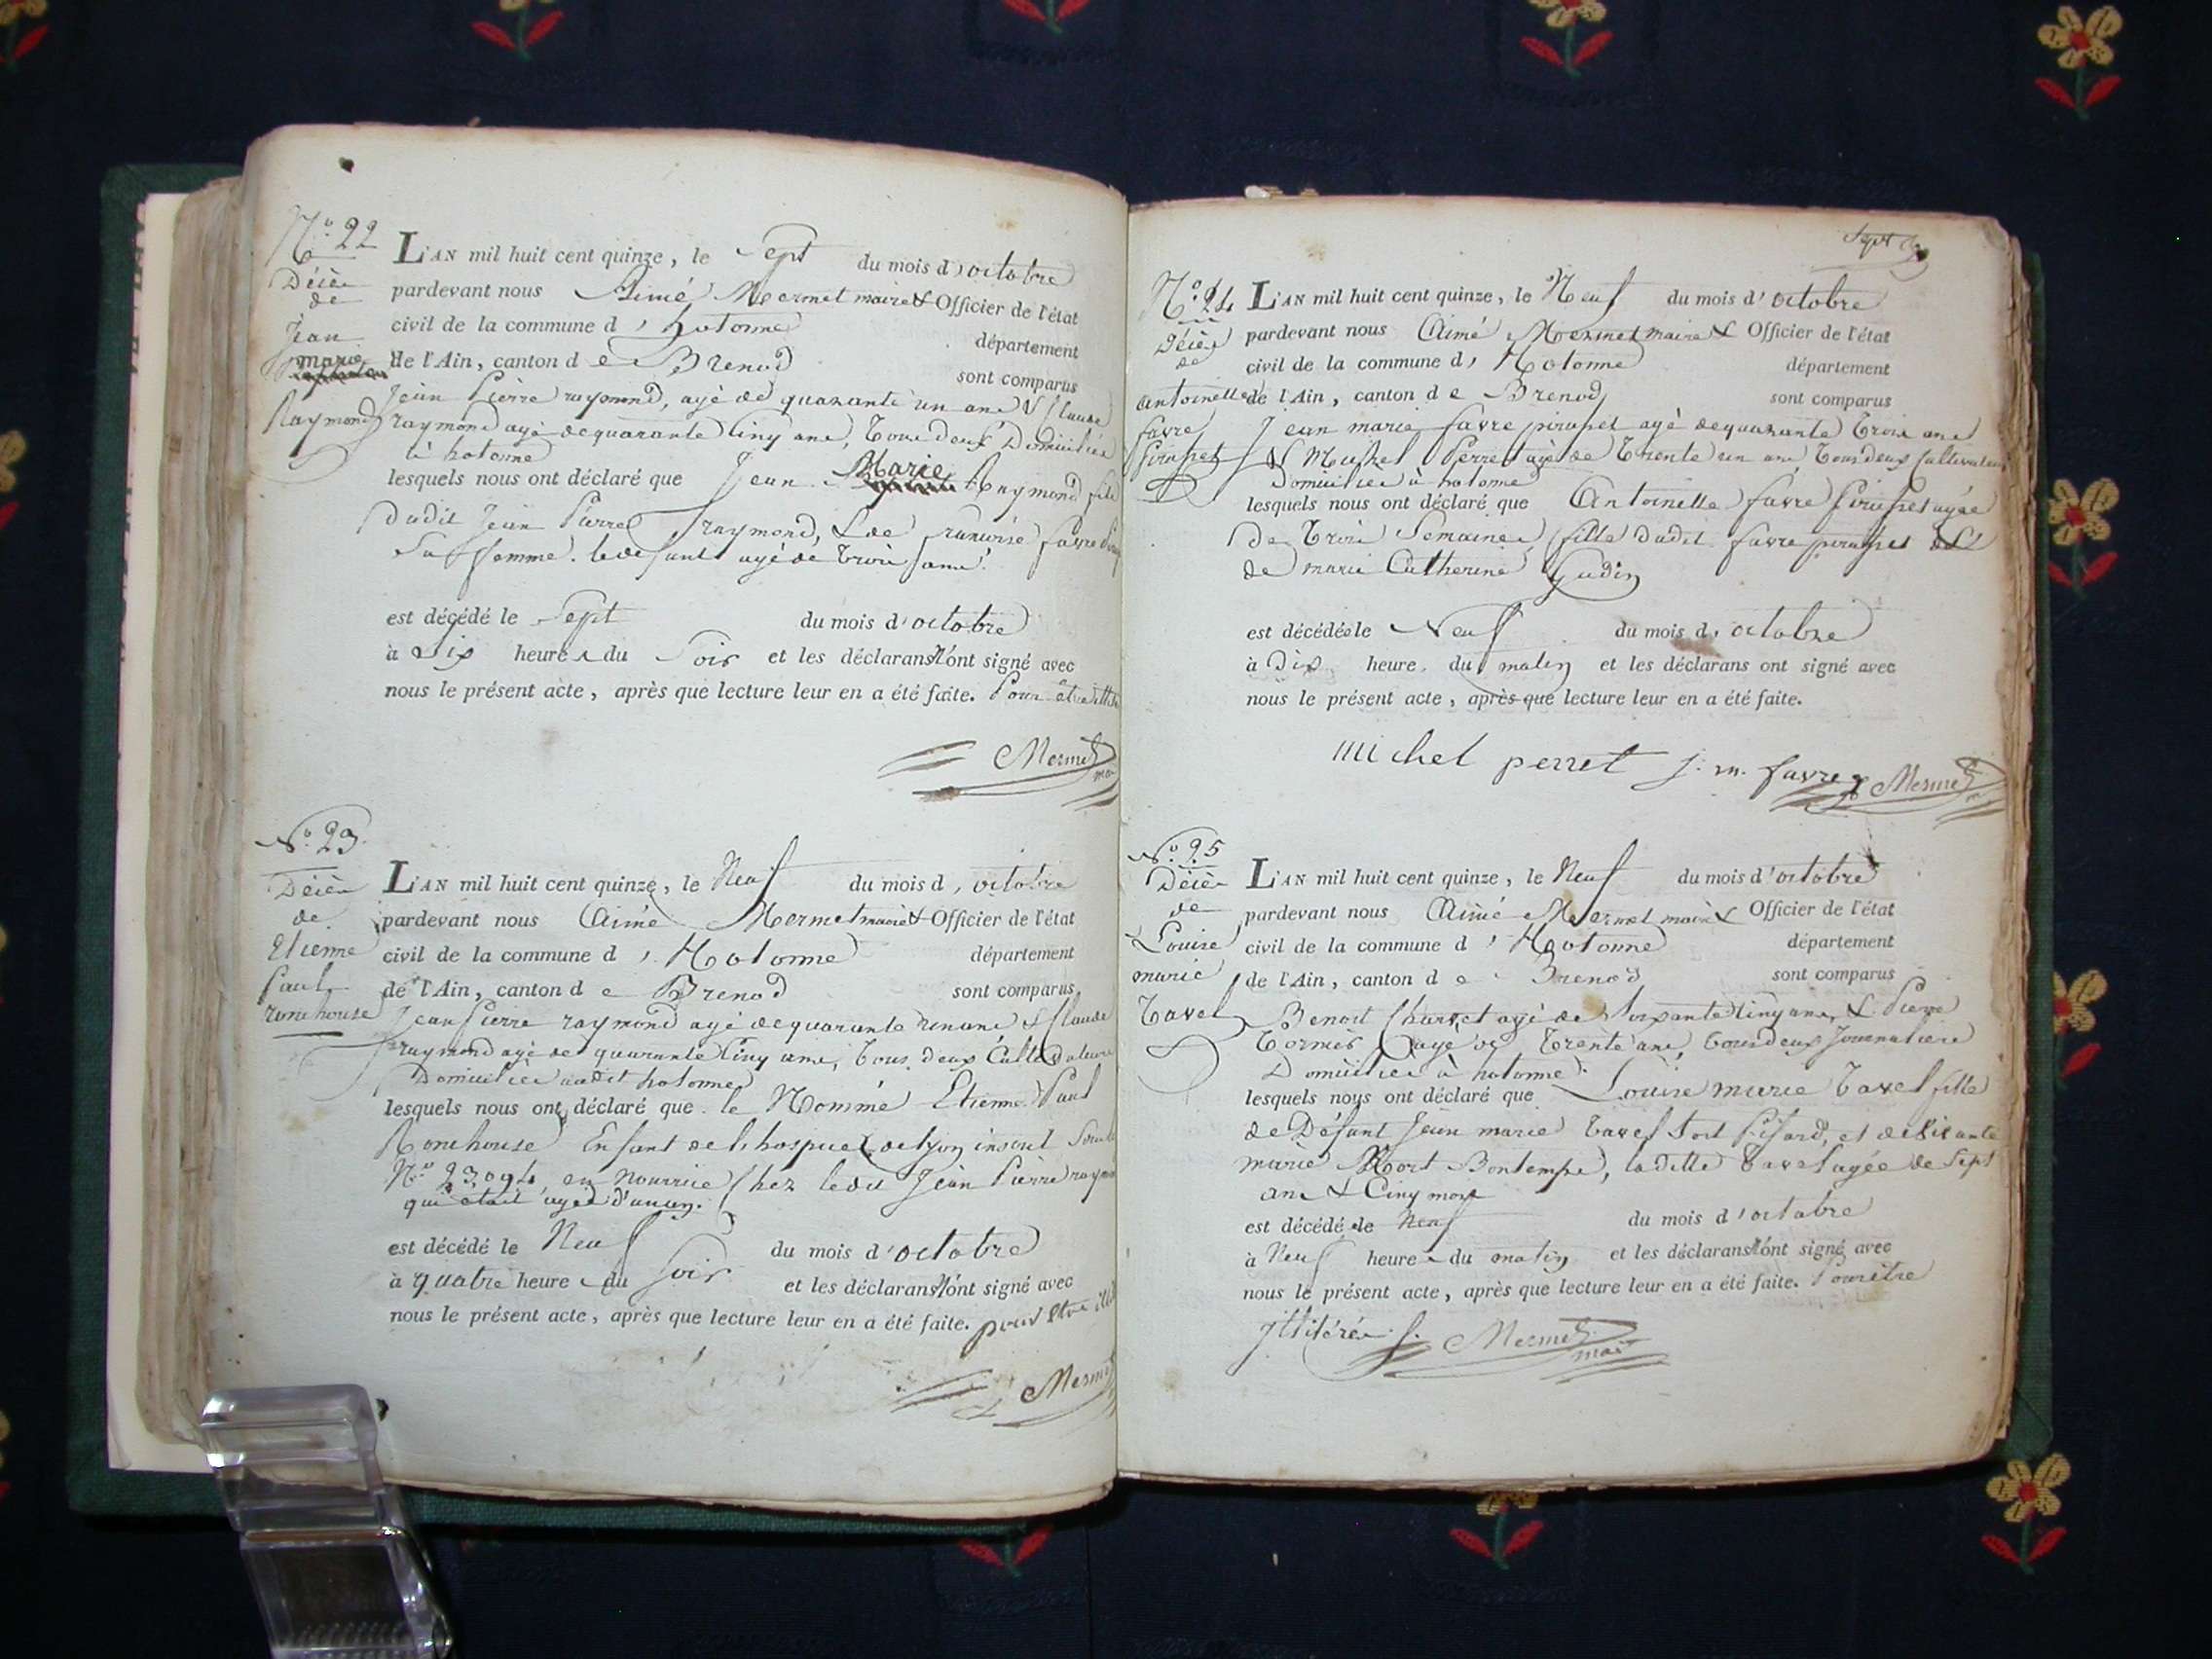 N.° 22
Décès
de
Jean
marie
Raymond
L'AN mil huit cent quinze, le Sept du mois d'octobre
pardevant nous Aimé Mermet maire & Officier de l'état
civil de la commune d'hotonne département
de l'Ain, canton de Brenod sont comparus
Jean Pierre raymond, agé de quarante un ans & Claude
raymond agé de quarante Cinq ans, Tous deux Domiciliés
à hotonne
lesquels nous ont déclaré que Jean Marie Raymond fils
Dudit Jean Pierre raymond, & de francoise favre
Sa femme. ledefunt agé de trois ans.
est décédé le Sept du mois d'octobre
à Six heures du Soir et les déclarans n'ont signé avec
nous le présent acte, après que lecture leur en a été faite. Pour être
Mermet
maire
N.° 23.
Décès
de
Etienne
Paul
ronchouse
L'AN mil huit cent quinze, le Neuf du mois d'octobre
pardevant nous Aimé Mermet maire & Officier de l'état
civil de la commune d'Hotonne département
de l'Ain, canton de Brenod sont comparus
Jean Pierre raymond agé de quarante un ans & Claude
raymond agé de quarante Cinq ans, Tous deux Cultivateurs
Domiciliés audit hotonne
lesquels nous ont déclaré que le Nommé Etienne Paul
Ronchouse Enfant de l'hospice de lyon inscrit Sous le
N.° 23,094 en Nourrice Chez ledit Jean Pierre raymond
qui était agé d'un an.
est décédé le Neuf du mois d'octobre
à quatre heures du Soir et les déclarans n'ont signé avec
nous le présent acte, après que lecture leur en a été faite. pour Etre
Mermet
Sept
N.° 24
Décès
de
antoinette
favre
L'AN mil huit cent quinze, le Neuf du mois d'octobre
pardevant nous Aimé Mermet maire & Officier de l'état
civil de la commune d'Hotonne département
de l'Ain, canton de Brenod sont comparus
Jean marie favre agé de quarante Trois ans
& Michel Perret agé de Trente un ans Tous deux Cultivateurs
Domiciliés à hotonne
lesquels nous ont déclaré que Antoinette favre agée
De Trois Semaines fille Dudit favre &
de marie Catherine Gudin
est décédée le Neuf du mois d'octobre
à Dix heure. du matin et les déclarans ont signé avec
nous le présent acte, après que lecture leur en a été faite.
michel perret j. m. favre Mermet
N.° 25
Décès
de
Louise
marie
Tavel
L'AN mil huit cent quinze, le Neuf du mois d'octobre
pardevant nous Aimé Mermet maire & Officier de l'état
civil de la commune d'Hotonne département
de l'Ain, canton de Brenod sont comparus
Benoit Charvet agé de Soixante Cinq ans, & Pierre
agé de Trente ans, tous deux Journaliers
Domiciliés à hotonne.
lesquels nous ont déclaré que Louise marie Tavel fille
de Défunt Jean marie Tavel et de vivante
marie Bontemps, laditte Tavel agée de Sept
ans & Cinq mois
est décédée le Neuf du mois d'octobre
à Neuf heures du matin et les déclarans n'ont signé avec
nous le présent acte, après que lecture leur en a été faite. Pour être
Mermet
maire